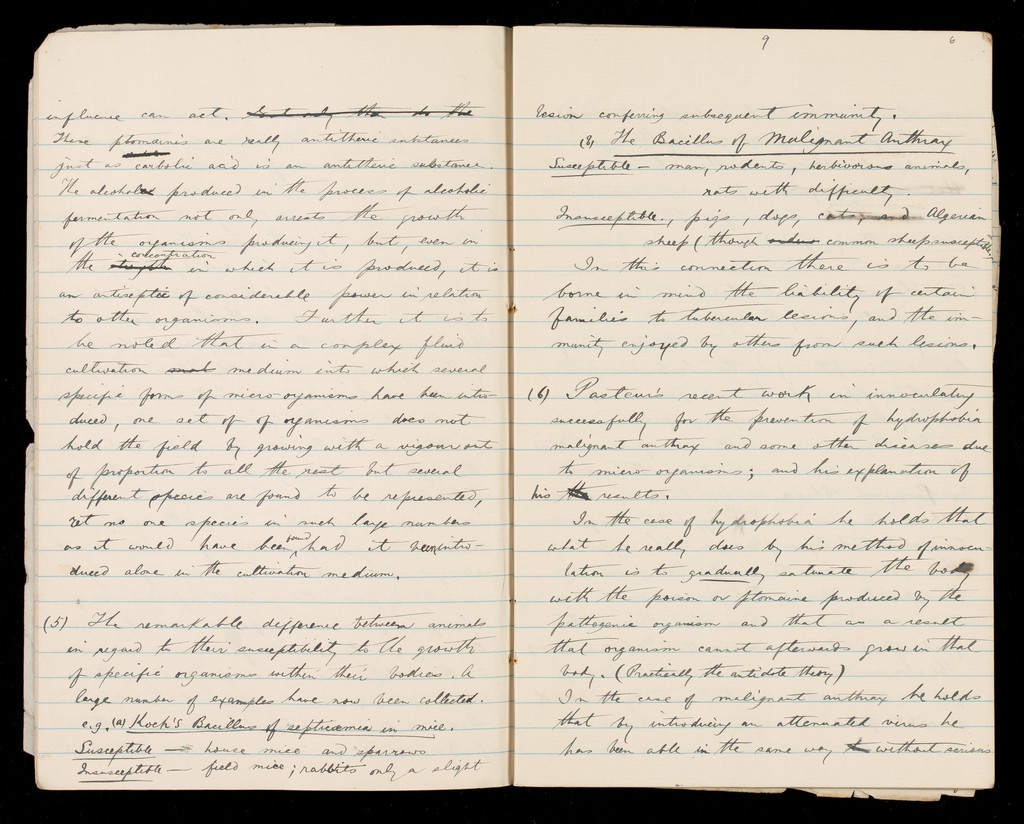 influence can act.
These ptomaines are really antitheric substances
just as carbolic acid is an antitheric substance.
The alcohol produced in the process of alcoholic
fermentation not only arrests the growth
of the organisms producing it, but, even in
the concentration in which it is produced, it is
an antiseptic of considerable power in relation
to other organisms. Further it is to
be noted that in a complex fluid
cultivation medium into which several
specific forms of micro-organisms have been intro-
duced, one set of of organisms does not
hold the field by growing with a vigour out
of proportion to all the rest but several
different species are found to be represented,
yet no one species in such large numbers
as it would have been found had it been intro-
duced alone in the cultivation medium.
(5) The remarkable difference between animals
in regard to their susceptibility to the growth
of specific organisms within their bodies. A
large number of examples have now been collected.
e.g. (a) Koch's Bacillus of septicæmia in mice.
Susceptible — house mice and sparrows
Insusceptible — field mice; rabbits only a slight
9 6
lesion conferring subsequent immunity.
(b) The Bacillus of Malignant Anthrax
Susceptible — man, rodents, herbivorous animals,
rats with difficulty.
Insusceptible, pigs, dogs, cats, and Algerian
sheep (though common sheep susceptible.)
In this connection there is to be
borne in mind the liability of certain
families to tubercular lesions, and the im-
munity enjoyed by others from such lesions.
(6) Pasteur's recent work in innoculating
successfully for the prevention of hydrophobia
malignant anthrax and some other diseases due
to micro organisms; and his explanation of
his results.
In the case of hydrophobia he holds that
what he really does by his method of innocu-
lation is to gradually saturate the body
with the poison or ptomaine produced by the
pathogenic organism and that as a result
that organism cannot afterwards grow in that
body. (Practically the antidote theory)
In the case of malignant anthrax he holds
that by introducing an attenuated virus he
has been able in the same way without serious